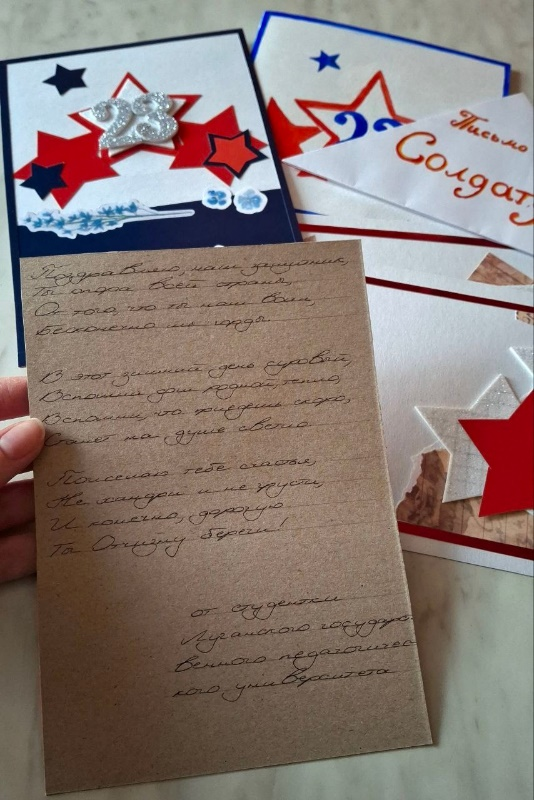 23
23
Письмо
Солдату
Поздравляю, наш защитник,
Ты опора всей страны,
От того, что ты наш воин,
Бесконечно мы горды.
В этот зимний день суровый,
Вспомни дом родной, тепло,
Вспомни, что приедешь скоро,
Станет на душе светло
Пожелаю тебе счастья,
Не хандри и не грусти,
И конечно, дорогую
Ты Отчизну береги!
от студентки
Луганского государст
венного педагогичес
кого университета